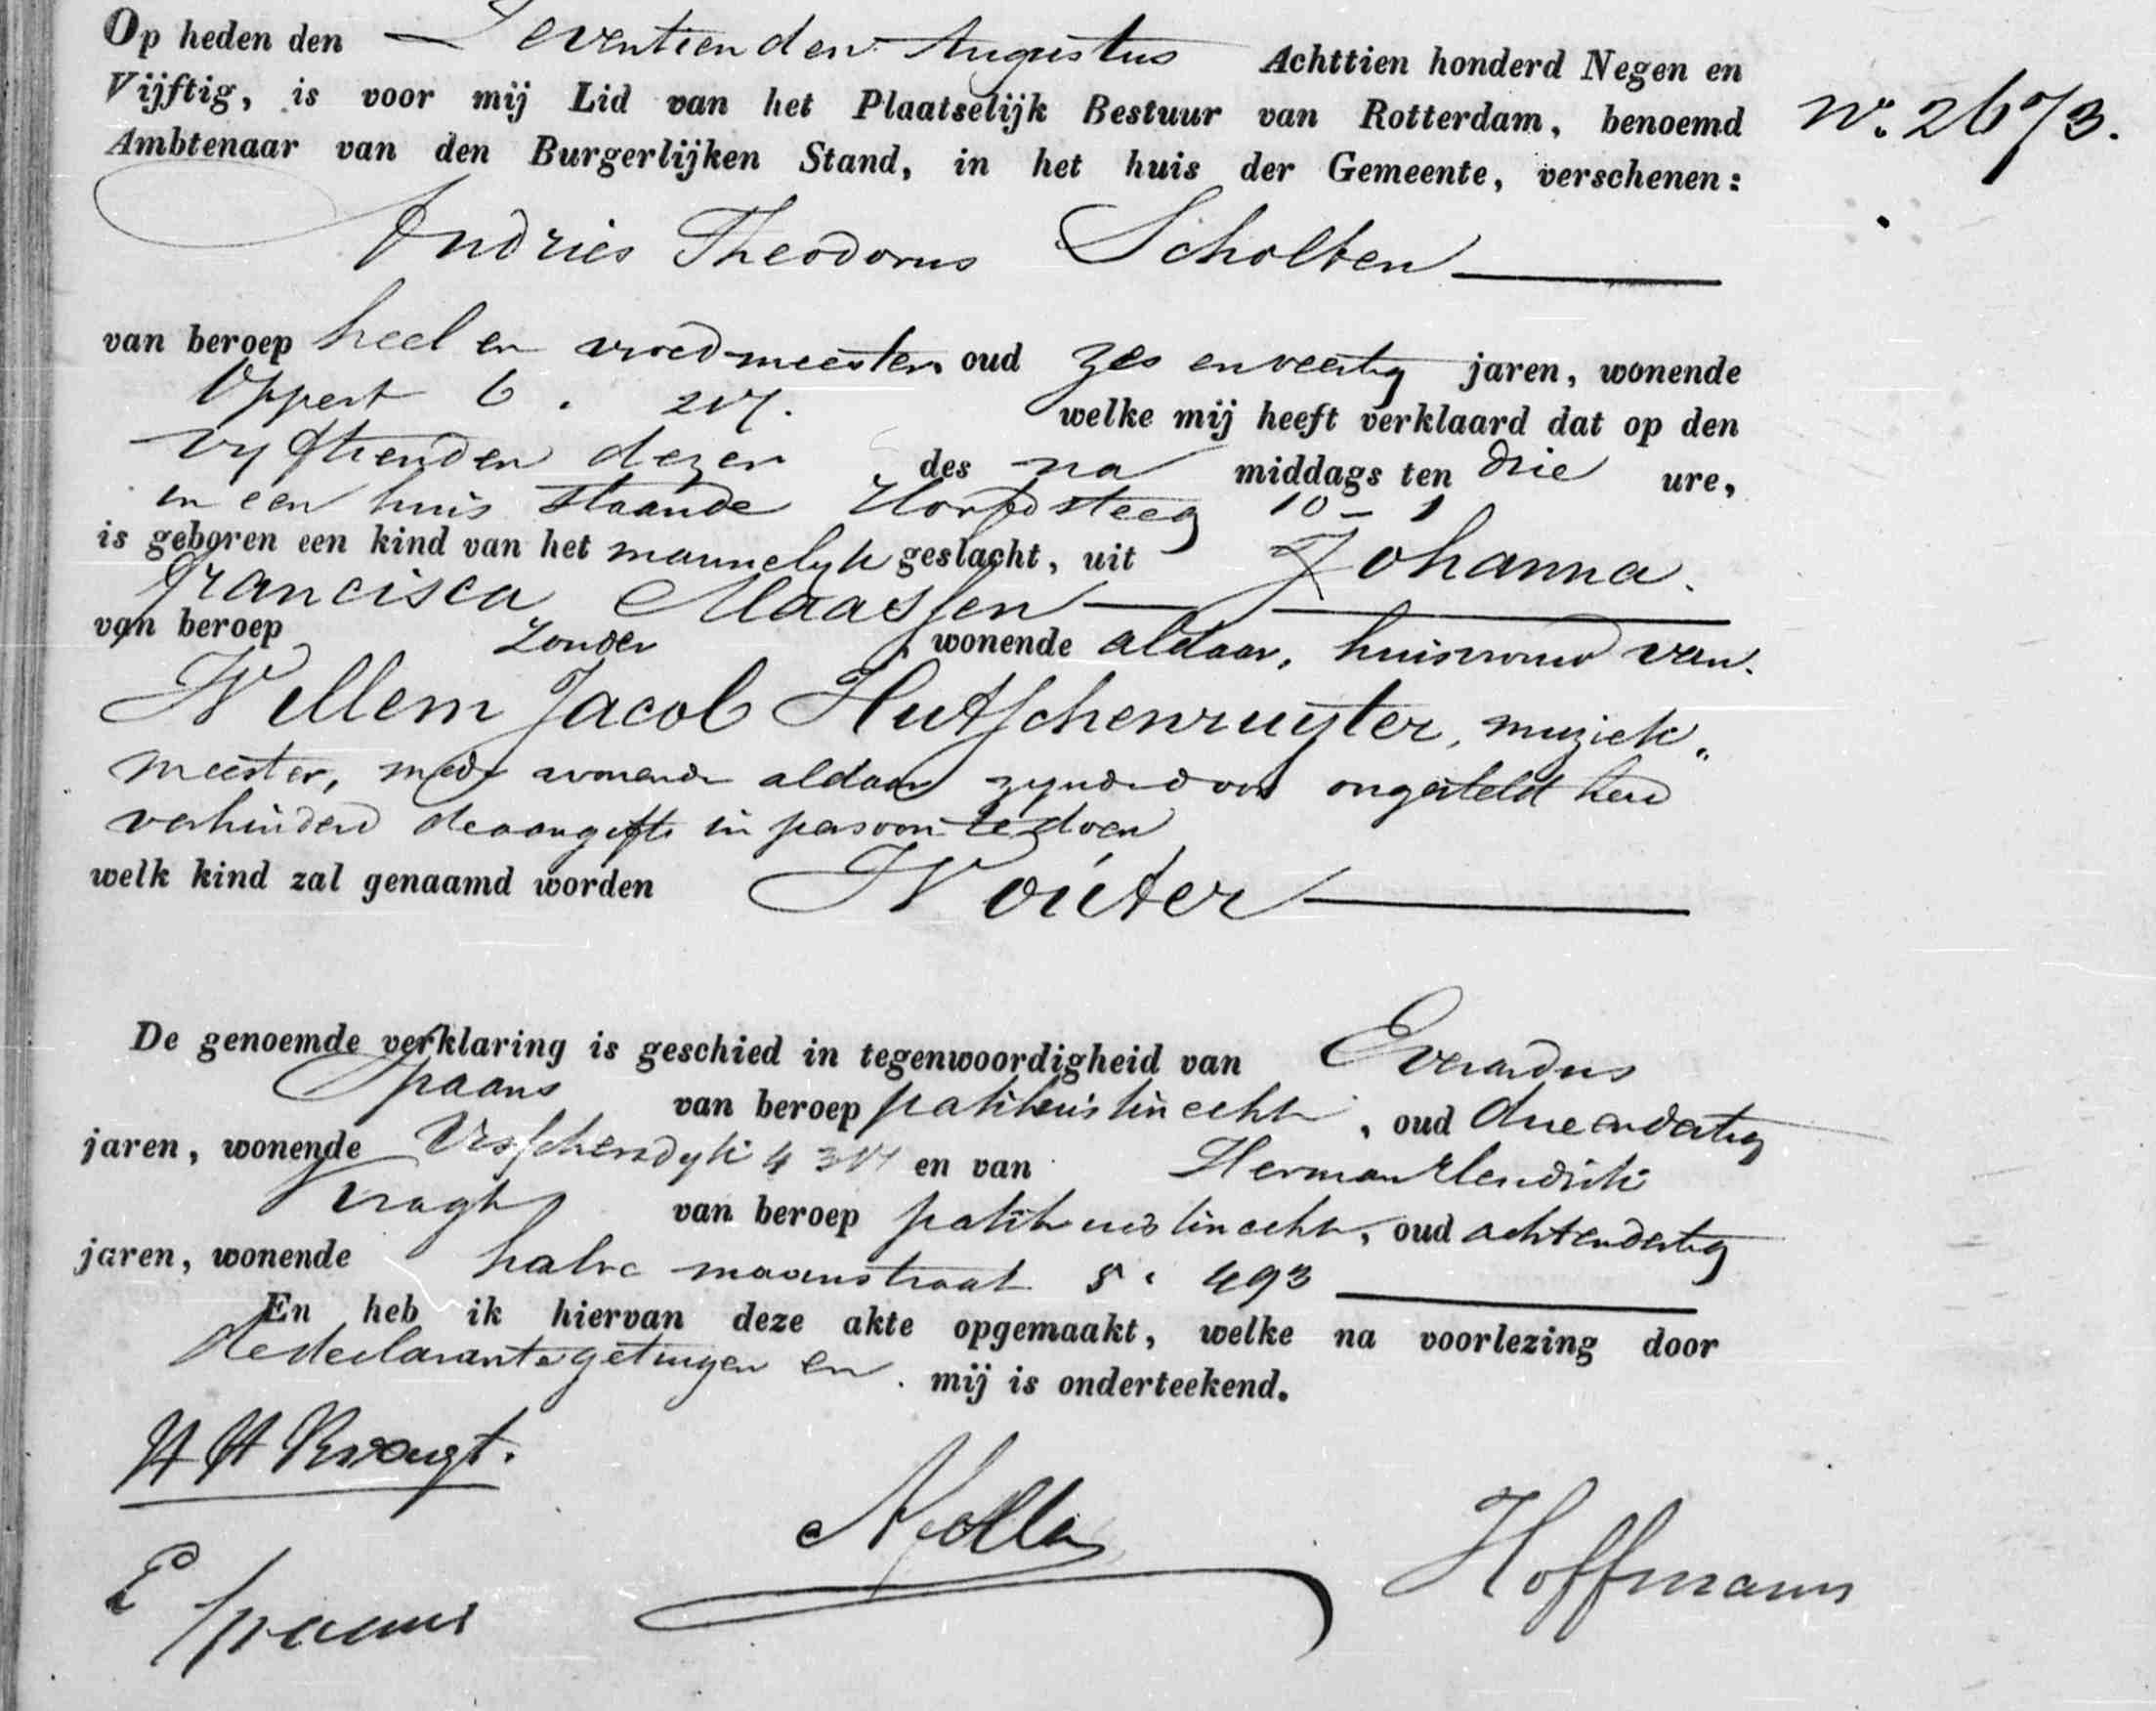 Op heden den Zeventienden Augustus Achttien honderd Negen en
Vijftig, is voor mij Lid van het Plaatselijk Bestuur van Rotterdam, benoemd
No. 2673.
Ambtenaar van den Burgerlijken Stand, in het huis der Gemeente, verschenen:
Andries Theodorus Scholten
van beroep heel en vroedmeester oud zes enveertig jaren, wonende
Oppert 6. 217. welke mij heeft verklaard dat op den
vyftienden dezer des na middags ten drie ure,
in een huis staande Hoofdsteeg 10 - 1
is geboren een kind van het mannelyk geslacht, uit Johanna
Francisca Maassen
van beroep zonder wonende aldaar, huisvrouw van
Willem Jacob Hutschenruyter, muziek„
meester, mede wonende aldaar zynde door ongesteldheid
verhinderd de aangifte in persoon te doen
welk kind zal genaamd worden Woúter
De genoemde verklaring is geschied in tegenwoordigheid van Everardus
Spaans van beroep pakhuisknecht, oud drieendertig
jaren, wonende en van Herman Hendrik
Kragt van beroep pakhuisknecht, oud achtendertig
jaren, wonende halve maanstraat 8. 493
En heb ik hiervan deze akte opgemaakt, welke na voorlezing door
de declarant getuigen en mij is onderteekend.
H H Kragt.
E Spaans
Hoffmann